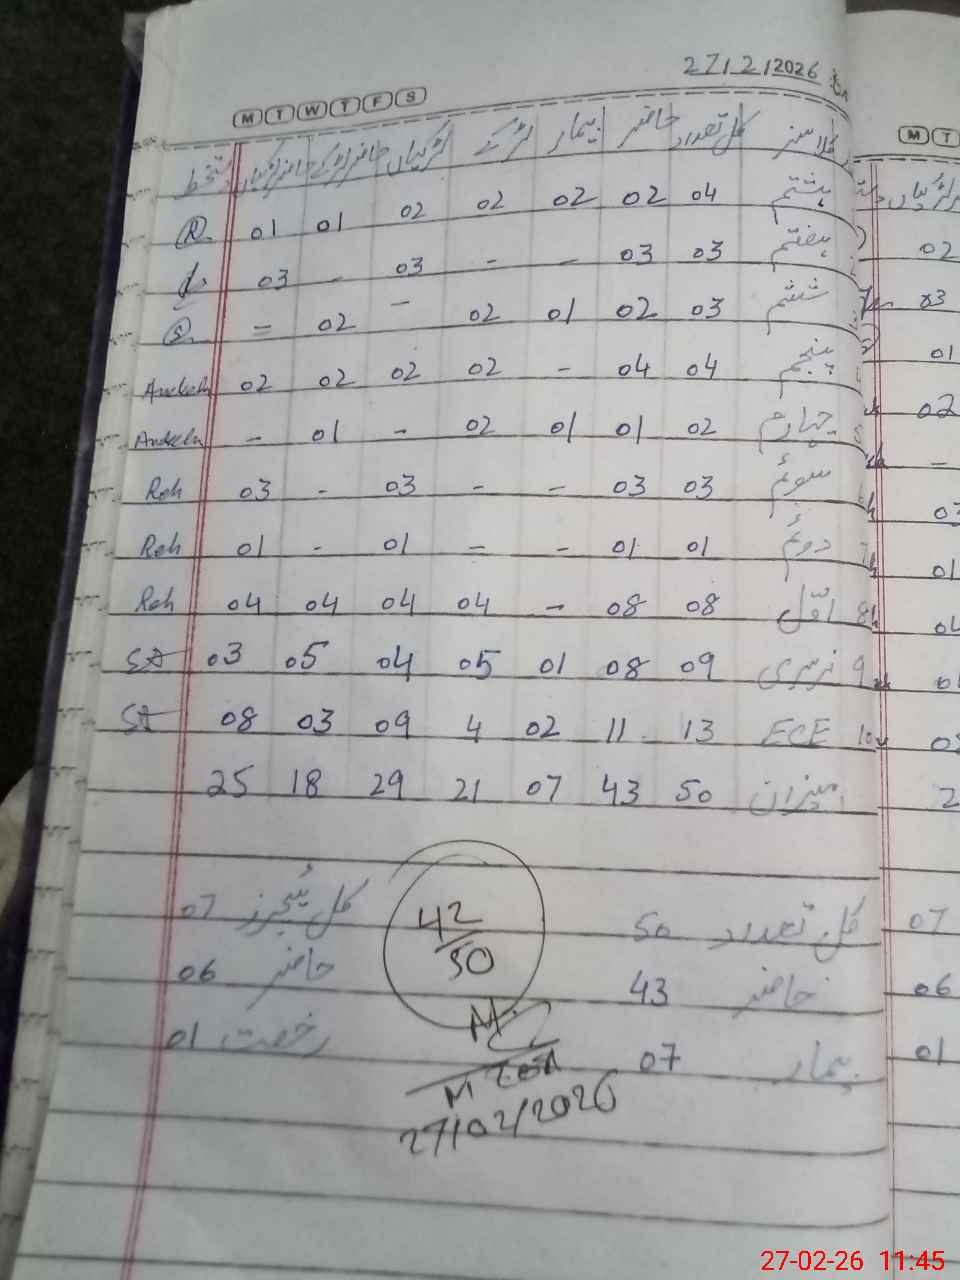 27/2/2026
M T W T F S
کلاسز کل تعداد حاضر بیمار لڑکے لڑکیاں حاضر لڑکے حاضر لڑکیاں دستخط
ہشتم 04 02 02 02 02 01 01
ہفتم 03 03 - - 03 - 03
ششم 03 02 01 02 - 02 =
پنجم 04 04 - 02 02 02 02
چہارم 02 01 01 02 - 01 -
سوئم 03 03 - - 03 - 03 Reh
دوئم 01 01 - = 01 - 01 Reh
اوّل 08 08 - 04 04 04 04 Reh
نرسری 09 08 01 05 04 05 03 SA
ECE 13 11 02 4 09 03 08 SA
میزران 50 43 07 21 29 18 25
کل تعداد 50 کل ٹیچرز 07
حاضر 43 حاضر 06
بیمار 07 رخصت 01
42/50
27/02/2026
M T
لڑکیاں
02
03
01
02
-
01
04
07
06
01
27-02-26 11:45